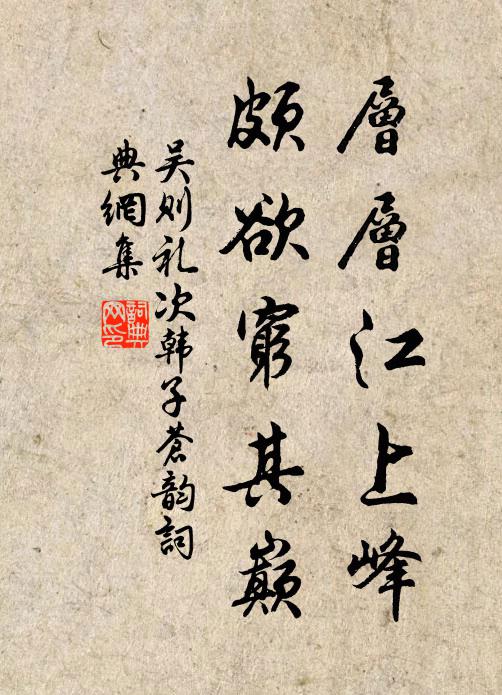 層層江上峰
頗欲窮其巔
吴则礼次韩子蒼韵詞
典網集
詞典網印